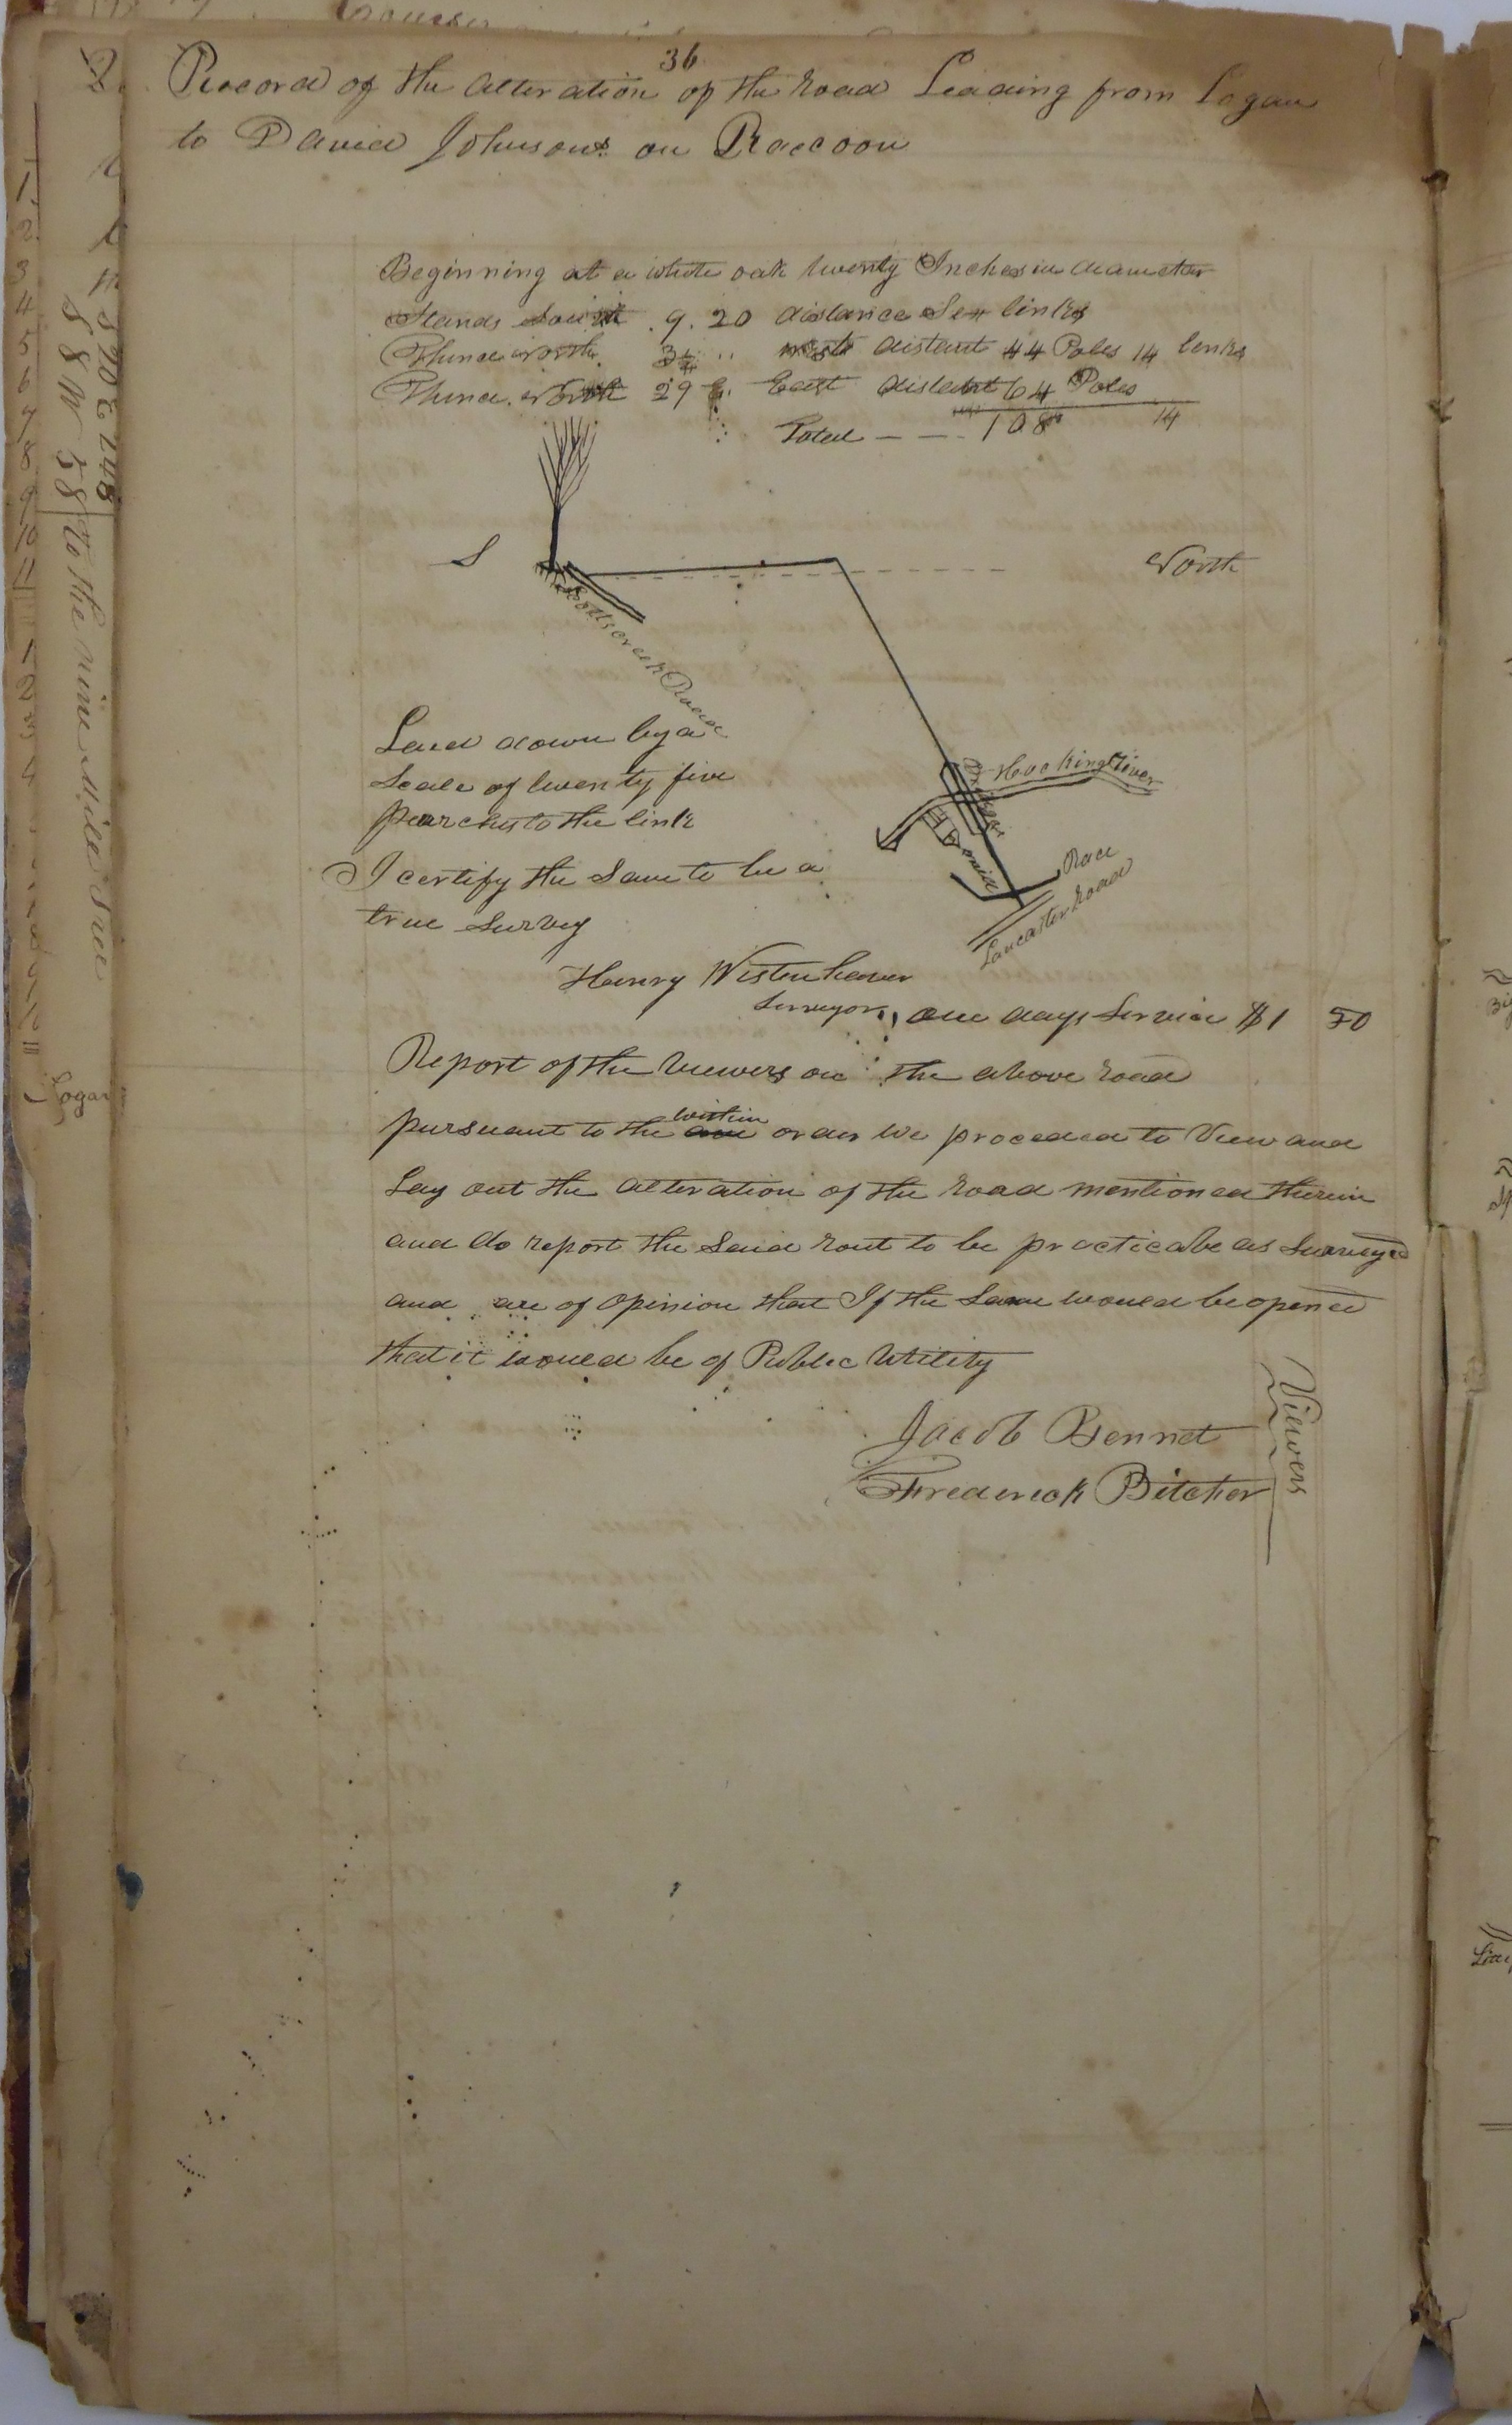 36
Record of the alteration of the road Leading from Logan
to David Johnsons on Raccoon
Beginning at a white oak twenty Inches in diameter
Stands South 9. 20 distance Six links
Thence North 3¼ west distant 44 Poles 14 links
Thence North 29 East distant 64 Poles
Total — — 108 14
S
North
Scotts creek Road
Laid down by a
Scale of twenty five
pearches to the link
Hocking River
Bridge
Race
Lancaster road
I certify the Same to be a
true Survey
Henry Westenhaver
Surveyor, one days Service $1 50
Report of the viewers on the above road
pursuant to the within order we proceeded to View and
Lay out the alteration of the road mentioned therein
and do report the Said rout to be practicabe as Surveyed
and are of opinion that If the Same would be opened
that it would be of Public Utility
Jacob Bennet
Frederick Bitcher
Viewers
1
2
3
4
5
6
7
8
9
10
11
1
2
3
4
S 70 E 248
S 8 W 58 to the nine Mile tree
Logan